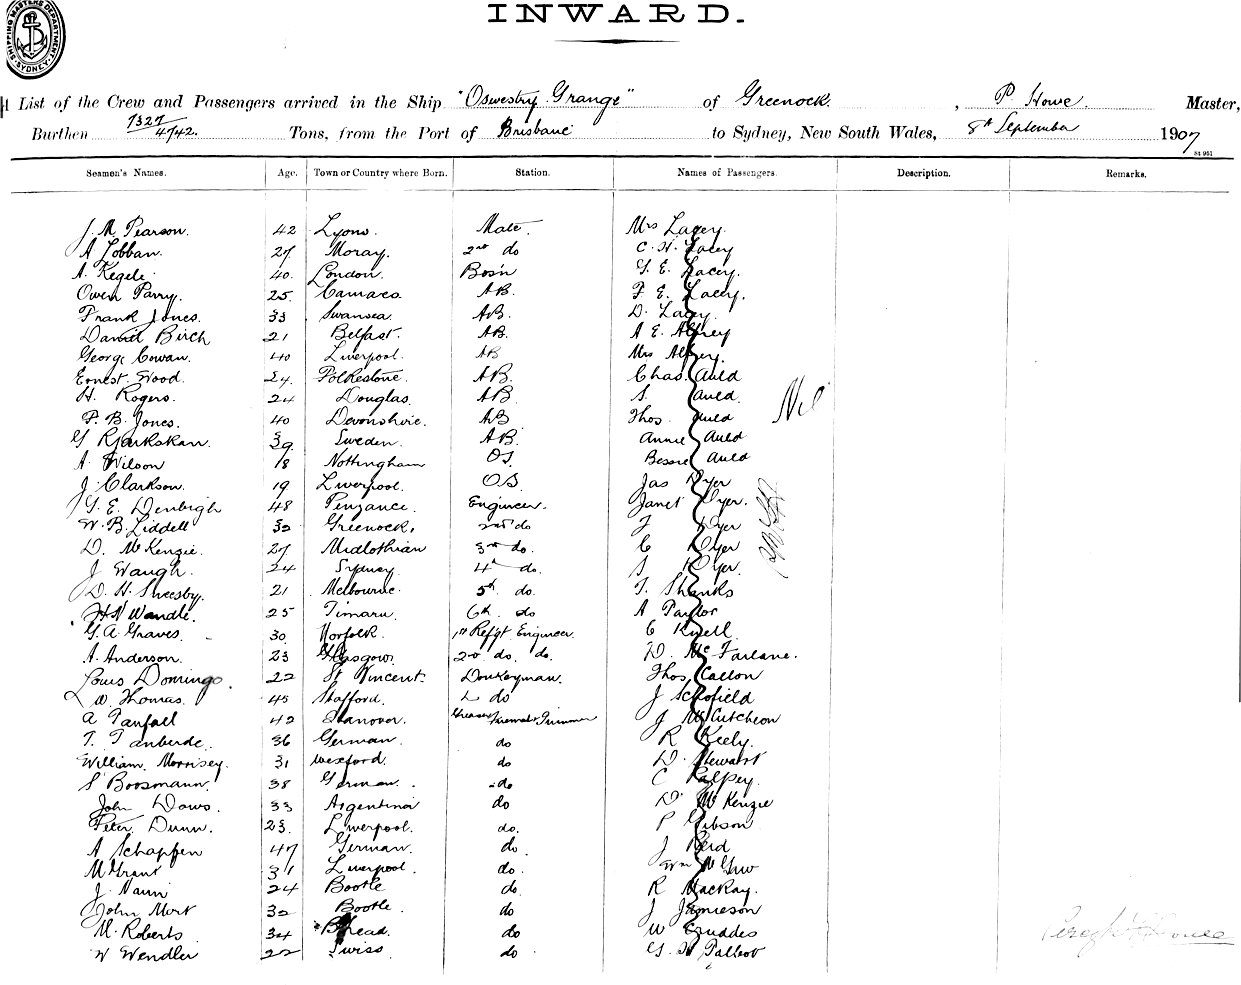 INWARD.
SHIPPING MASTERS DEPARTMENT SYDNEY
A List of the Crew and Passengers arrived in the Ship "Oswestry Grange" of Greenock, P. Howe. Master,
Burthen 7327/4742. Tons, from the Port of Brisbane to Sydney, New South Wales, 8th September 1907
Seamen's Names. Age. Town or Country where Born. Station. Names of Passengers. Description. Remarks.
J. M. Pearson. 42 Lyons. Mate. Mrs Lacey.
A Lobban. 27 Moray. 2nd do C. H. Lacey
A. Kegele. 40. London. Bosn G. E. Lacey.
Owen Parry. 25. Camaes. AB. F E. Lacey.
Frank Jones. 33 Swansea. AB. D. Lacey.
Daniel Birch 21 Belfast. AB. A E. Alfrey
George Cowan. 40 Liverpool. AB Mrs Alfrey.
Ernest Wood. 24. Folkestone. AB. Chas. Auld
H. Rogers. 24 Douglas. AB S. Auld. Nil
P. B. Jones. 40 Devonshire. AB Thos Auld
G 39. Sweden. AB. Annie Auld
A. Wilson 18 Nottingham OS. Bessie Auld
J. Clarkson. 19 Liverpool. OS. Jas Dyer
G. E. Denbigh 48 Penzance. Engineer. Janet Dyer.
W. B. Liddell 32 Greenock. 2nd do J Dyer
D. McKenzie. 27 Midlothian 3rd do. C Dyer
J Waugh. 24 Sydney 4th do. S Dyer.
D. H. Sheesby. 21 Melbourne. 5th do. T. Shanks
H Wandle. 25 Timaru. 6th do A Taylor
G. A. Graves. 30 Norfolk. 1st Refgt Engineer. C Knell.
A. Anderson. 23 Glasgow. 2nd do. do. D. McFarlane.
Louis Domingo. 22 St Vincent. Donkeyman. Thos Callon
W. Thomas. 45 Stafford. do J Schofield
A Panfall 42 Hanover. Greaser Fireman & Trimmer J McCutcheon
T. 36 German. do R Keely.
William. Morrisey. 31 Wexford. do D. Stewart
S Boosmann. 38 German. do C Palpey.
John Daws. 33 Argentina do D. McKenzie
Peter Dunn. 23. Liverpool. do. P Gibson
A Schapfen 47 German. do. J Reid
M Grant 31 Liverpool. do. Wm
J. Nann 24 Bootle do. R MacKay.
John Mort 32 Bootle. do J Jamieson
M. Roberts 34 B'head. do W Cruddes
W Wendler 22 Swiss do. G. H Talbot